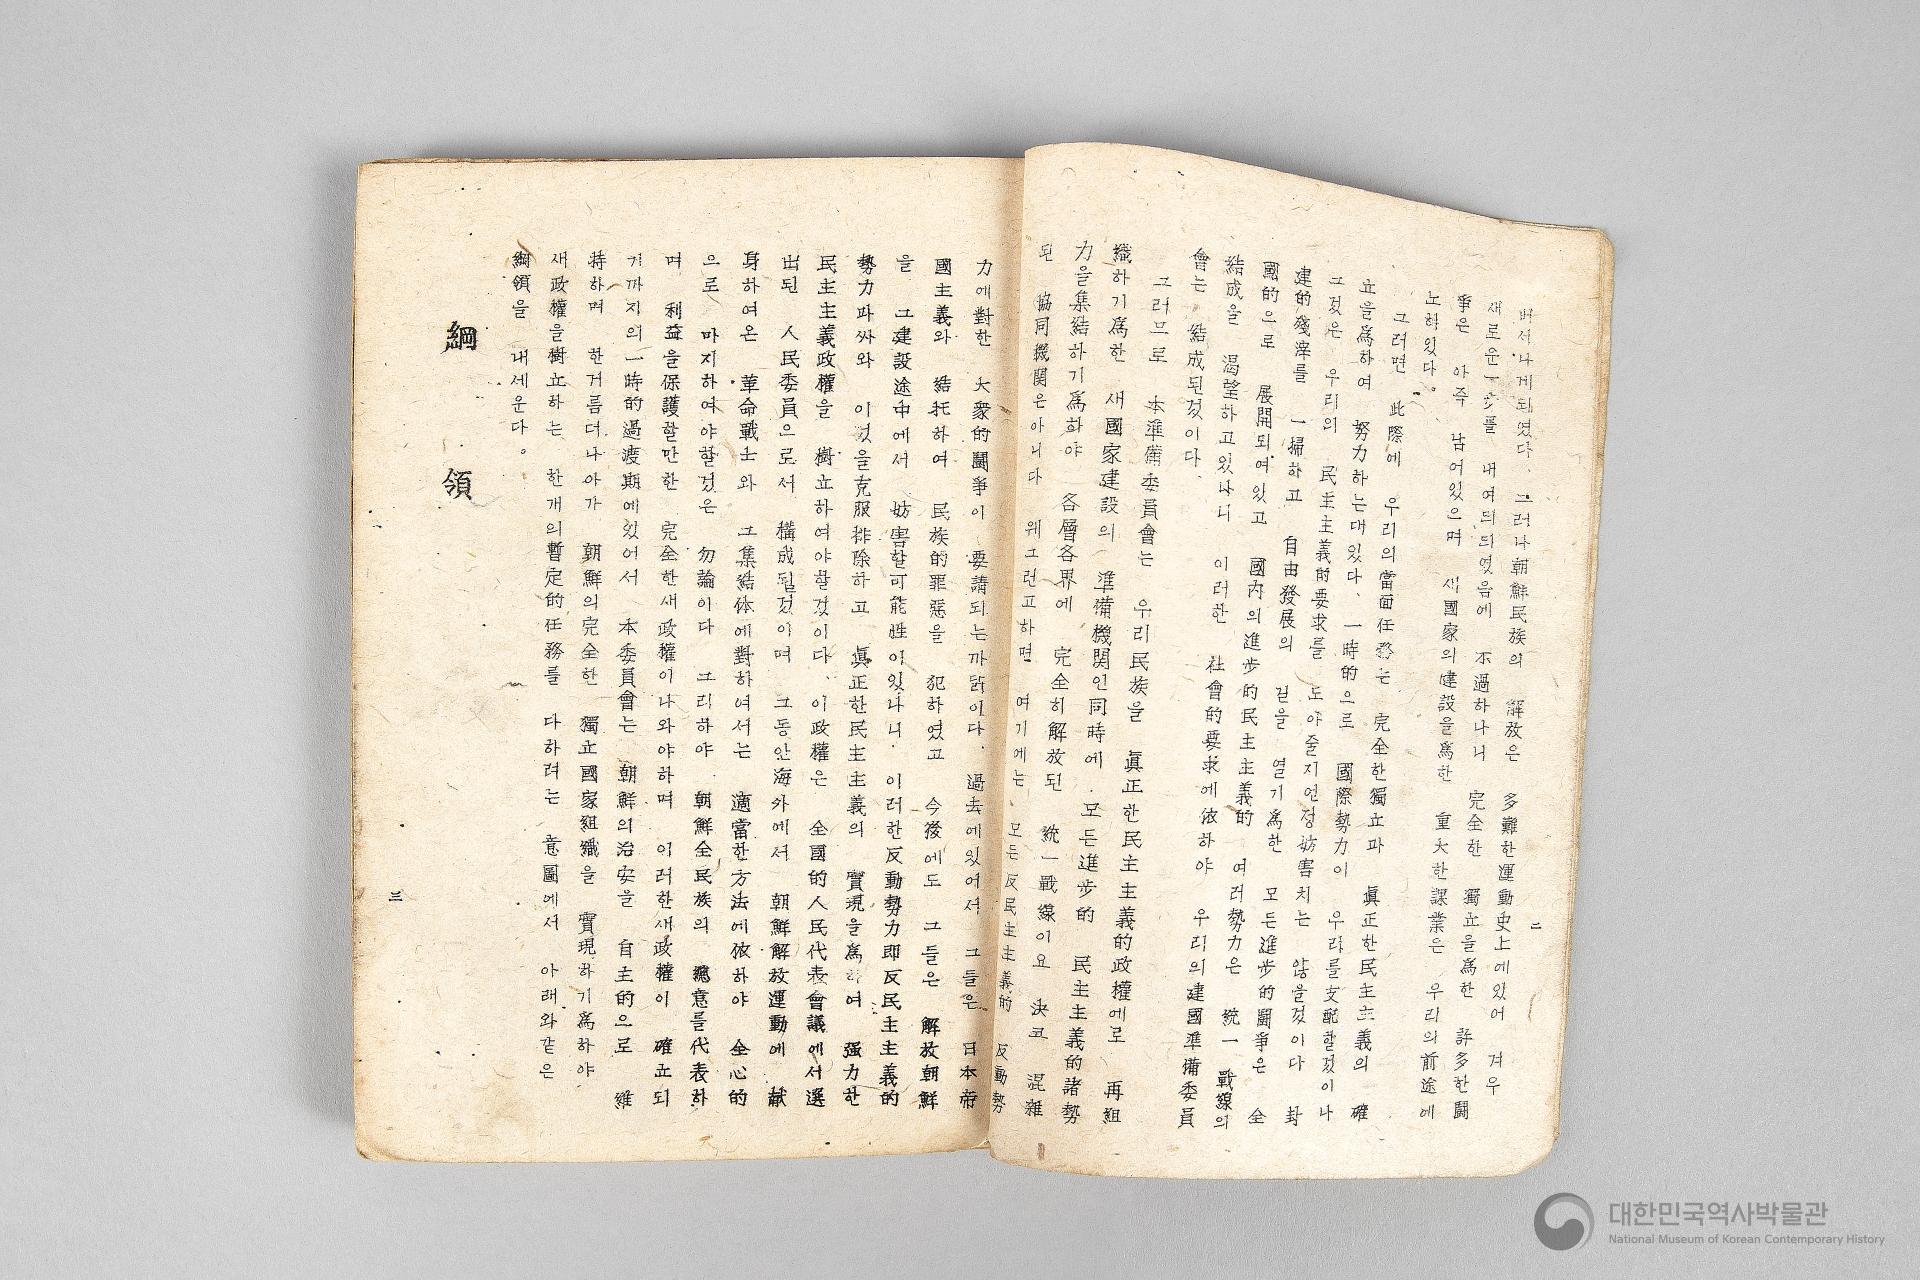 버서나게되였다. 그러나朝鮮民族의 解放은 多難한運動史上에있어 겨우
새로운一步를 내여되되였음에 不過하나니 完全한 獨立을爲한 許多한鬪
爭은 아즉 남어있으며 새國家의建設을爲한 重大한課業은 우리의前途에
노혀있다.
그러면 此際에 우리의當面任務는 完全한獨立과 眞正한民主主義의 確
立을爲하여 努力하는대있다. 一時的으로 國際勢力이 우리를支配할것이나
그것은 우리의 民主主義的要求를 도아줄지언정妨害치는 않을것이다 封
建的殘滓를 一掃하고 自由發展의 길을 열기爲한 모든進步的鬪爭은 全
國的으로 展開되여있고 國內의進步的民主主義的 여러勢力은 統一戰線의
結成을 渴望하고있나니 이러한 社會的要求에依하야 우리의建國準備委員
會는 結成된것이다.
그러므로 本準備委員會는 우리民族을 眞正한民主主義的政權에로 再組
織하기爲한 새國家建設의 準備機関인同時에 모든進步的 民主主義的諸勢
力을集結하기爲하야 各層各界에 完全히解放된 統一戰線이요 決코 混雜
된 協同機関은아니다 웨그런고하면 여기에는 모든反民主主義的 反動勢
力에對한 大衆的鬪爭이 要請되는까닭이다. 過去에있어서 그들은 日本帝
國主義와 結托하여 民族的罪惡을 犯하였고 今後에도 그들은 解放朝鮮
을 그建設途中에서 妨害할可能性이있나니. 이러한反動勢力即反民主主義的
勢力과싸와 이것을克服排除하고 眞正한民主主義의 實現을爲하여 强力한
民主主義政權을 樹立하여야할것이다. 이政權은 全國的人民代表會議에서選
出된 人民委員으로서 構成될것이며 그동안海外에서 朝鮮解放運動에 献
身하여온 革命戰士와 그集結体에對하여서는 適當한方法에依하야 全心的
으로 마지하여야할것은 勿論이다 그리하야 朝鮮全民族의 總意를代表하
며 利益을保護할만한 完全한새政權이나와야하며 이러한새政權이 確立되
기까지의一時的過渡期에있어서 本委員會는 朝鮮의治安을 自主的으로 維
持하며 한거름더나아가 朝鮮의完全한 獨立國家組織을 實現하기爲하야
새政權을樹立하는 한개의暫定的任務를 다하려는 意圖에서 아래와같은
綱領을 내세운다。
綱領
二
三
대한민국역사박물관
National Museum of Korean Contemporary History